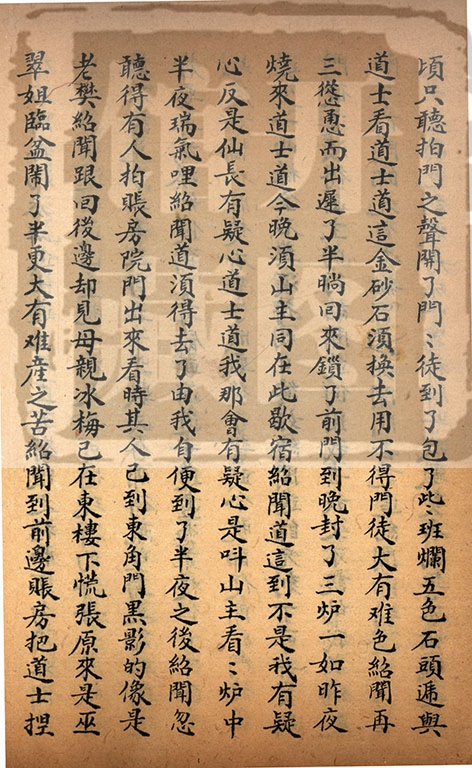 頃只聽拍門之聲開了門〻徒到了包了些〻班斕五色石頭遞與
道士看道士道這金砂石須換去用不得門徒大有难色紹聞再
三慫恿而出遲了半晌回來鎖了前門到晚封了三炉一如昨夜
燒來道士道今晚湏山主同在此歇宿紹聞道這到不是我有疑
心反是仙長有疑心道士道我那會有疑心是呌山主看〻炉中
半夜瑞氣哩紹聞道湏得去了由我自便到了半夜之後紹聞忽
聽得有人拍賬房院門出來看時其人已到東角門黒影的像是
老樊紹聞跟回後邊却見母親冰梅已在東樓下慌張原來是巫
翠姐臨盆鬧了半更大有难産之苦紹聞到前邊賬房把道士捏